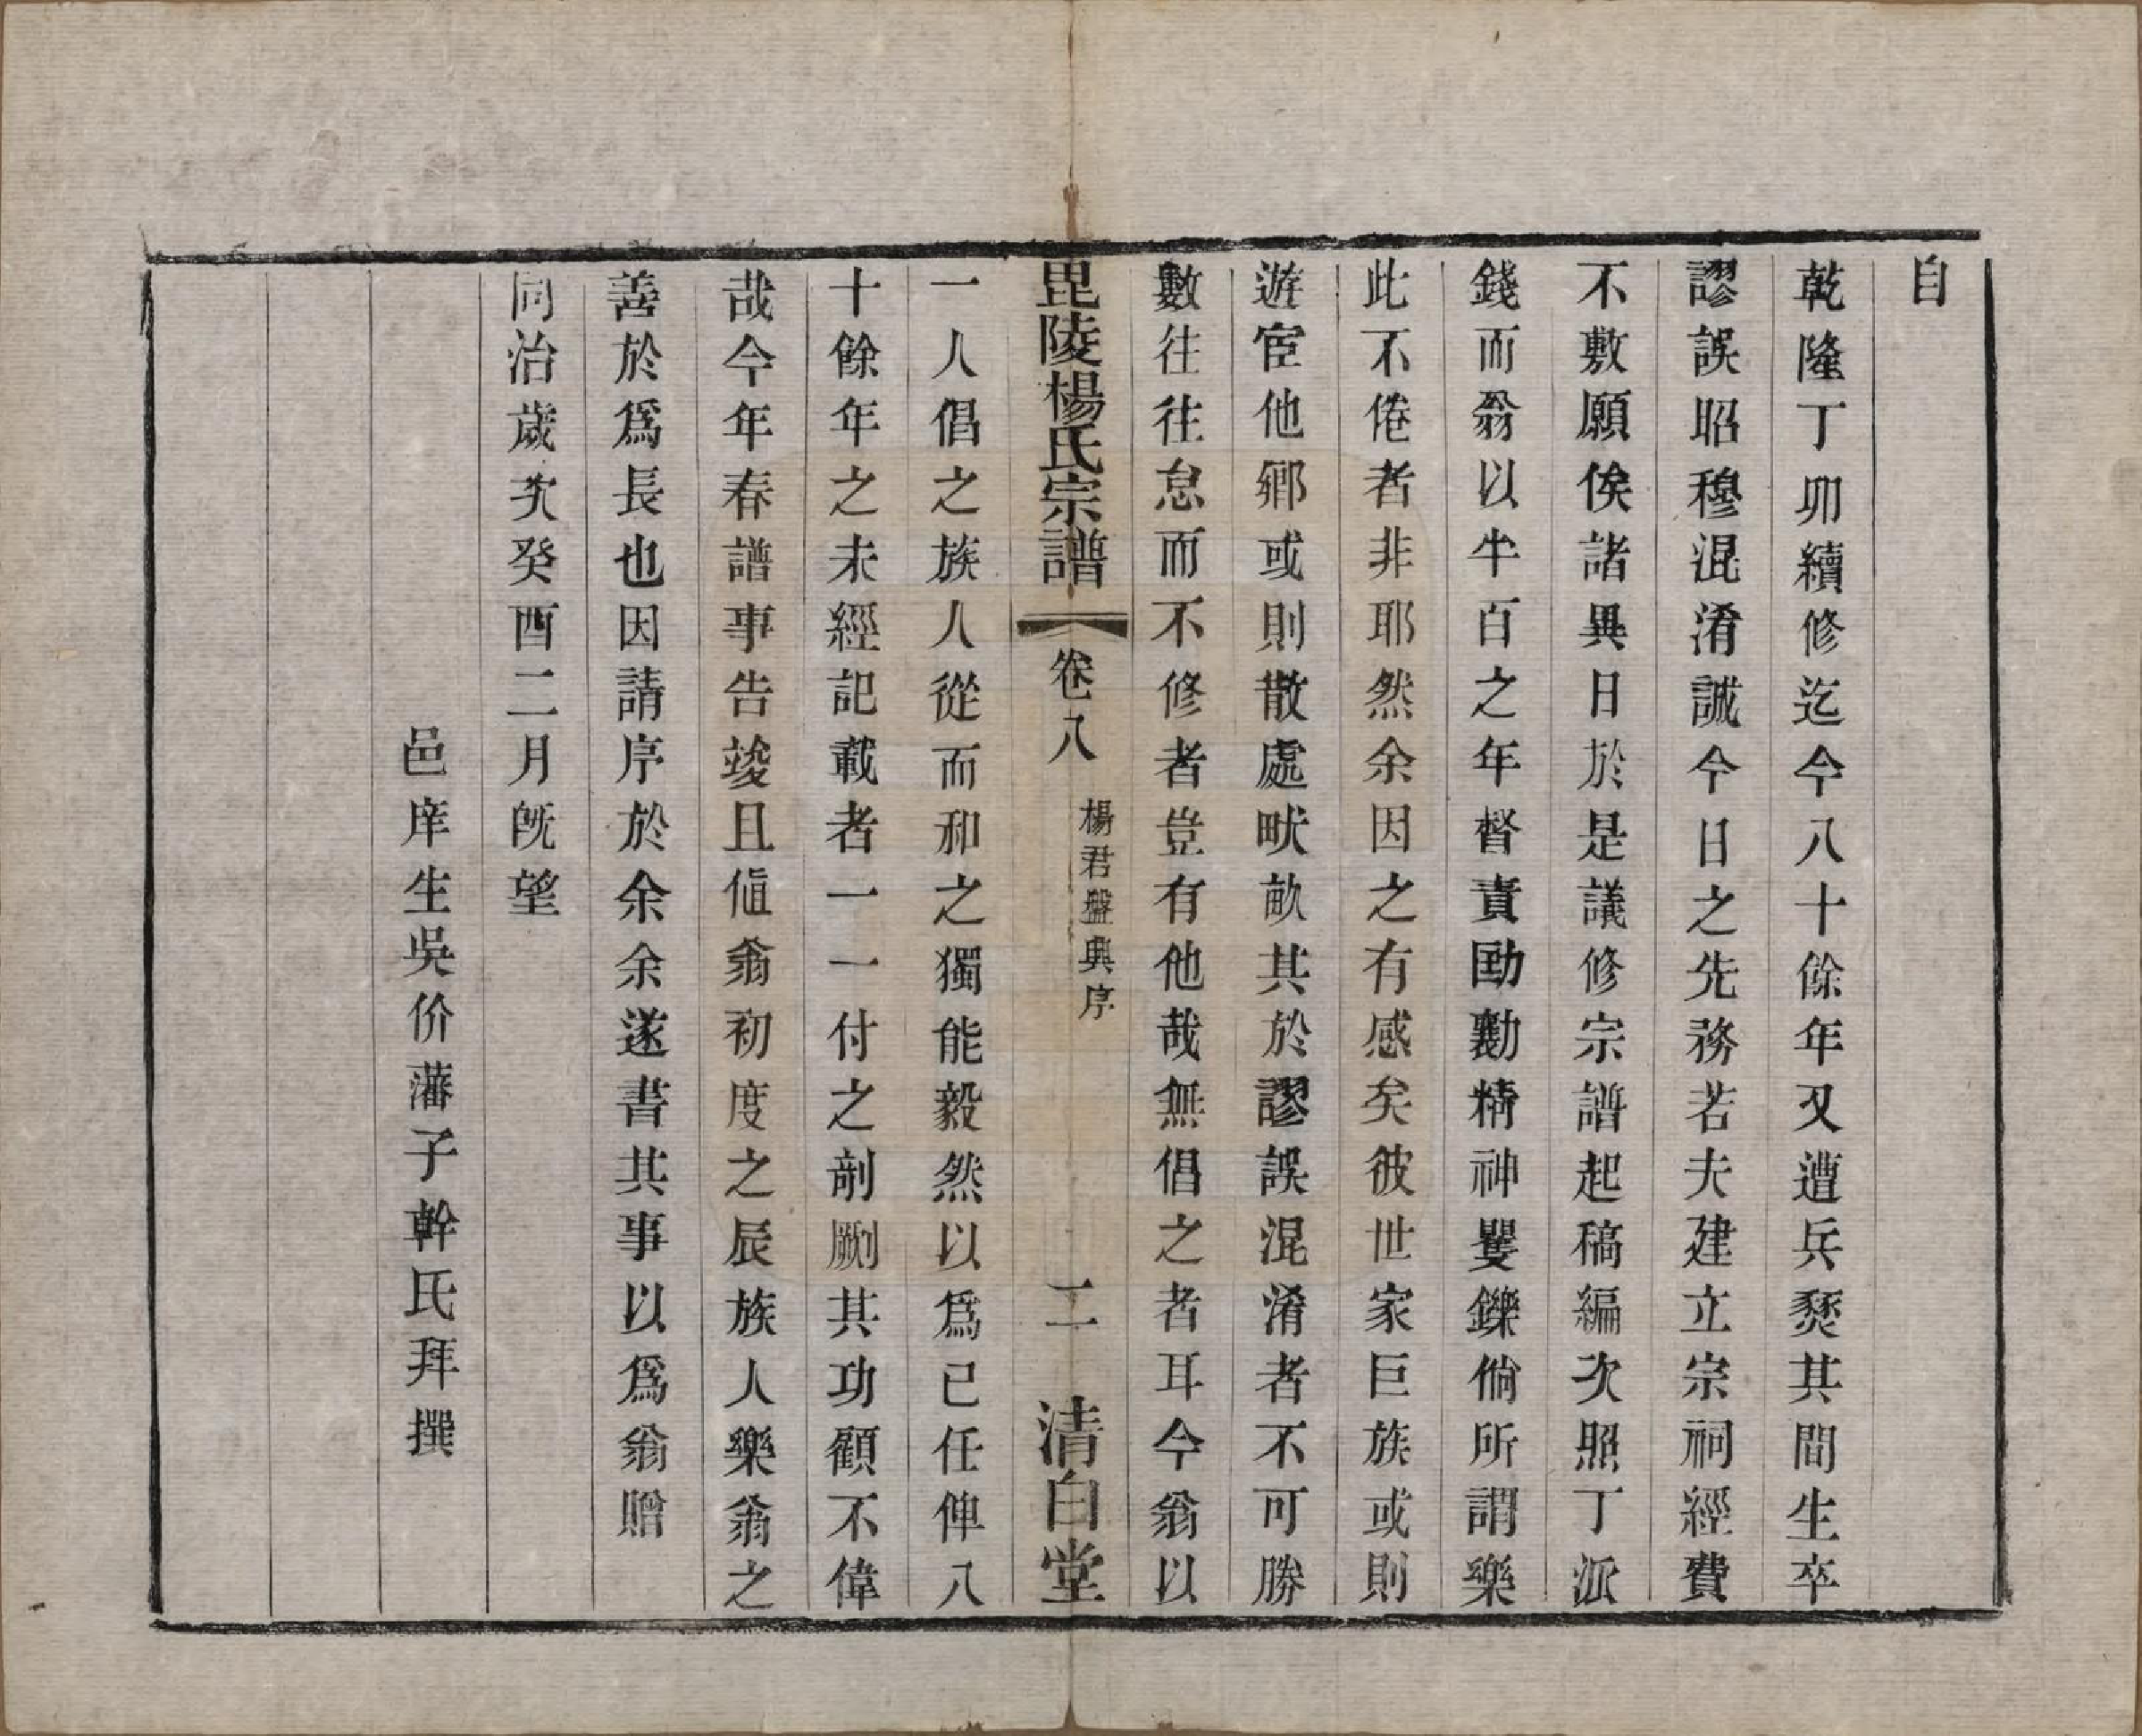 自
乾隆丁卯續修迄今八十餘年又遭兵燹其間生卒
謬誤昭穆混淆誠今日之先務若夫建立宗祠經費
不敷願俟諸異日於是議修宗譜起稿編次照丁派
錢而翁以半百之年督責勷精神矍鑠倘所謂樂
此不倦者非耶然余因之有感矣彼世家巨族或則
遊宦他鄉或則散處畎畝其於謬誤混淆者不可勝
數往往怠而不修者豈有他哉無倡之者耳今翁以
毘陵楊氏宗譜 卷八 楊君盤興序 二 清白堂
一人倡之族人從而和之獨能毅然以爲己任俾八
十餘年之未經記載者一一付之剞劂其功顧不偉
哉今年春譜事告竣且値翁初度之辰族人樂翁之
善於爲長也因請序於余余遂書其事以爲翁贈
同治歲次癸酉二月旣望
邑庠生吳价藩子幹氏拜撰